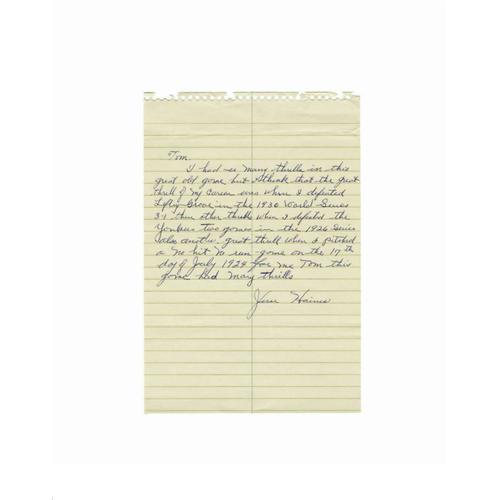 Tom
I had so many thrills in this
great old game but I think that the great
thrill of my career was when I defeated
Lefty Grove in the 1930 World Series
3-1 then other thrills when I defeated the
Yankees two games in the 1926 Series
also another great thrill when I pitched
a No hit No run game on the 17th
day of July 1924 for me Tom this
game had many thrills
Jesse Haines